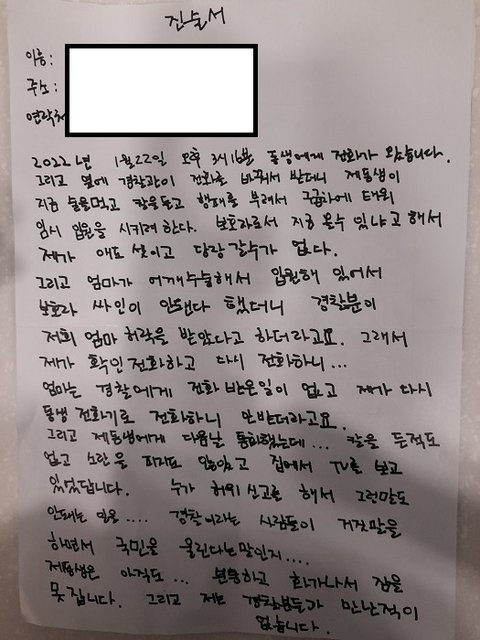 진술서
이름:
주소:
연락처
2022년 1월22일 오후 3시16분 동생에게 전화가 왔습니다.
그리고 옆에 경찰관이 전화를 바꿔서 받더니 제동생이
지금 술을먹고 칼을들고 행패를 부려서 구급차에 태워
임시 입원을 시키려 한다. 보호자로서 지금 올수 있냐고 해서
제가 애도 셋이고 당장 갈수가 없다.
그리고 엄마가 어깨수술해서 입원해 있어서
보호자 싸인이 안된다 했더니 경찰분이
저희 엄마 허락을 받았다고 하더라고요. 그래서
제가 확인전화하고 다시 전화하니...
엄마는 경찰에게 전화 받은일이 없고 제가 다시
동생 전화기로 전화하니 안받더라고요.
그리고 제동생에게 다음날 통화했는데... 칼을 든적도
없고 소란을 피지도 않았고 집에서 TV를 보고
있었답니다. 누가 허위 신고를 해서 그런말도
안돼는 일을.... 경찰이라는 사람들이 거짓말을
하면서 국민을 울린다는말인지....
제동생은 아직도... 분통하고 화가나서 잠을
못 잡니다. 그리고 저는 경찰분들과 만난적이
없습니다.